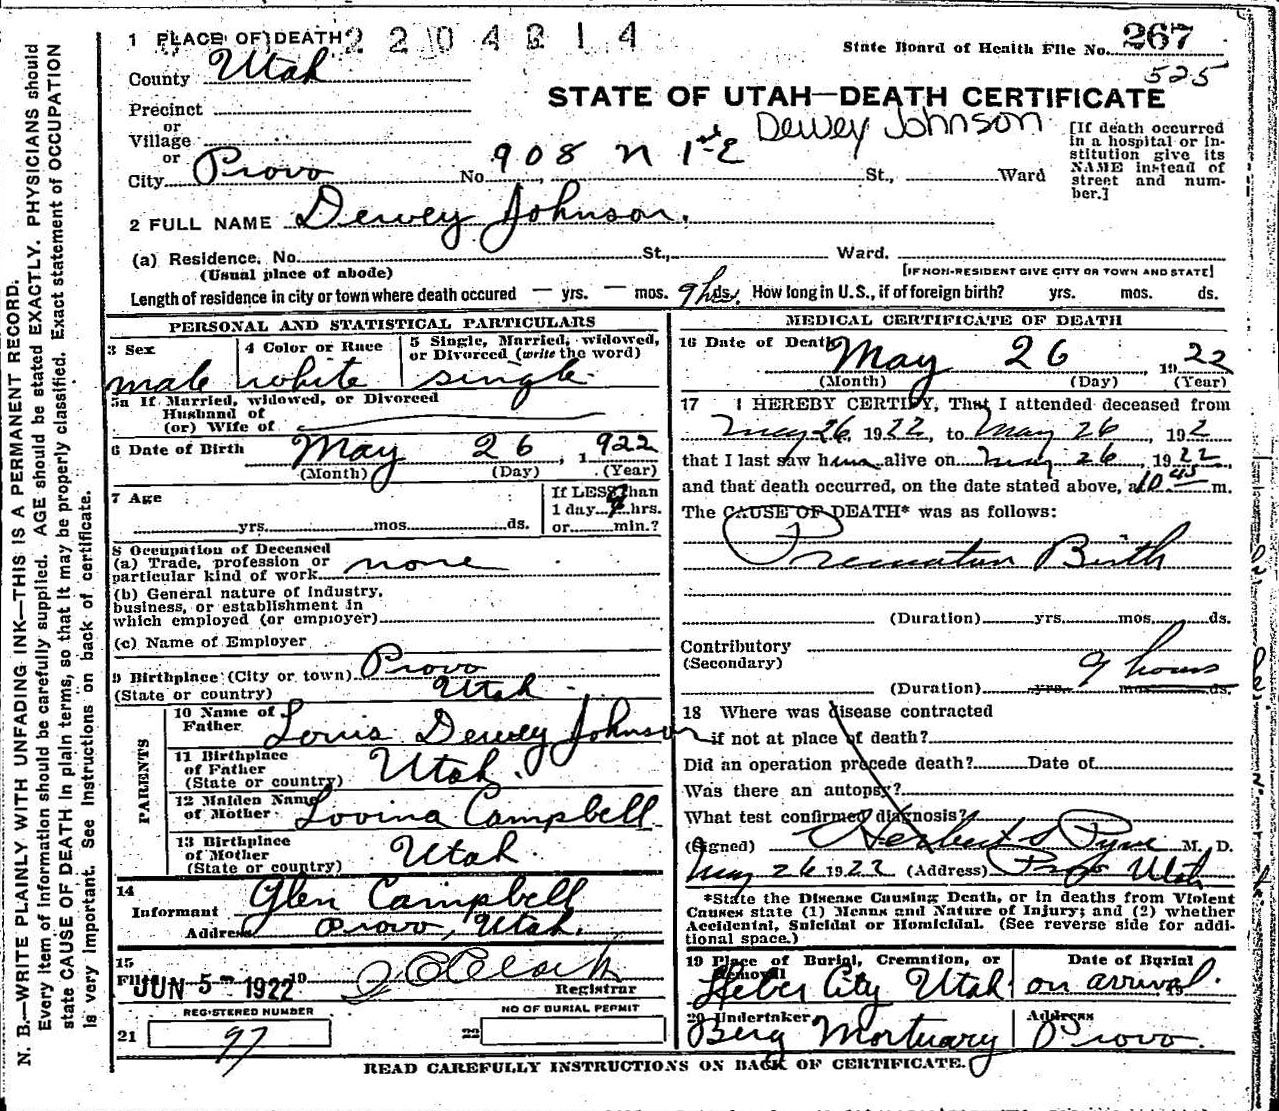 1 PLACE OF DEATH 2204214
State Board of Health File No. 267
525
County Utah
STATE OF UTAH—DEATH CERTIFICATE
Precinct
or
Village
Dewey Johnson
[If death occurred in a hospital or institution give its NAME instead of street and number.]
or
City Provo No. 908 N 1st E St., Ward
2 FULL NAME Dewey Johnson.
(a) Residence. No. St., Ward.
(Usual place of abode) [IF NON-RESIDENT GIVE CITY OR TOWN AND STATE]
Length of residence in city or town where death occured — yrs. — mos. 9 hrs. ds. How long in U.S., if of foreign birth? yrs. mos. ds.
PERSONAL AND STATISTICAL PARTICULARS
3 Sex male
4 Color or Race white
5 Single, Married, widowed, or Divorced (write the word) single
5a If Married, widowed, or Divorced
Husband of
(or) Wife of
6 Date of Birth May 26, 1922
(Month) (Day) (Year)
7 Age yrs. mos. ds.
If LESS than
1 day 9 hrs.
or min.?
8 Occupation of Deceased
(a) Trade, profession or
particular kind of work none
(b) General nature of Industry,
business, or establishment in
which employed (or employer)
(c) Name of Employer
9 Birthplace (City or town) Provo
(State or country) Utah
PARENTS
10 Name of Father Louis Dewey Johnson
11 Birthplace
of Father
(State or country) Utah.
12 Maiden Name
of Mother Lovina Campbell
13 Birthplace
of Mother
(State or country) Utah.
14
Informant Glen Campbell
Address Provo, Utah.
15
Filed JUN 5 - 1922 19
Registrar
REGISTERED NUMBER
21 97
NO OF BURIAL PERMIT
22
MEDICAL CERTIFICATE OF DEATH
16 Date of Death May 26, 1922
(Month) (Day) (Year)
17 I HEREBY CERTIFY, That I attended deceased from
May 26, 1922, to May 26, 192
that I last saw him alive on May 26, 1922,
and that death occurred, on the date stated above, at 10 45 m.
The CAUSE OF DEATH* was as follows:
Premature Birth
(Duration) yrs. mos. ds.
Contributory
(Secondary)
9 hours
(Duration) yrs. mos. ds.
18 Where was disease contracted
if not at place of death?
Did an operation precede death? Date of
Was there an autopsy?
What test confirmed diagnosis?
(Signed) Herbert S Pyne M. D.
May 26 1922 (Address) Provo Utah
*State the Disease Causing Death, or in deaths from Violent
Causes state (1) Means and Nature of Injury; and (2) whether
Accidental, Suicidal or Homicidal. (See reverse side for addi-
tional space.)
19 Place of Burial, Cremation, or
Removal
Heber City Utah
Date of Burial
on arrival. 19
20 Undertaker
Berg Mortuary
Address
Provo.
READ CAREFULLY INSTRUCTIONS ON BACK OF CERTIFICATE.
N. B.—WRITE PLAINLY WITH UNFADING INK—THIS IS A PERMANENT RECORD.
Every item of information should be carefully supplied. AGE should be stated EXACTLY. PHYSICIANS should
state CAUSE OF DEATH in plain terms, so that it may be properly classified. Exact statement of OCCUPATION
is very important. See Instructions on back of certificate.